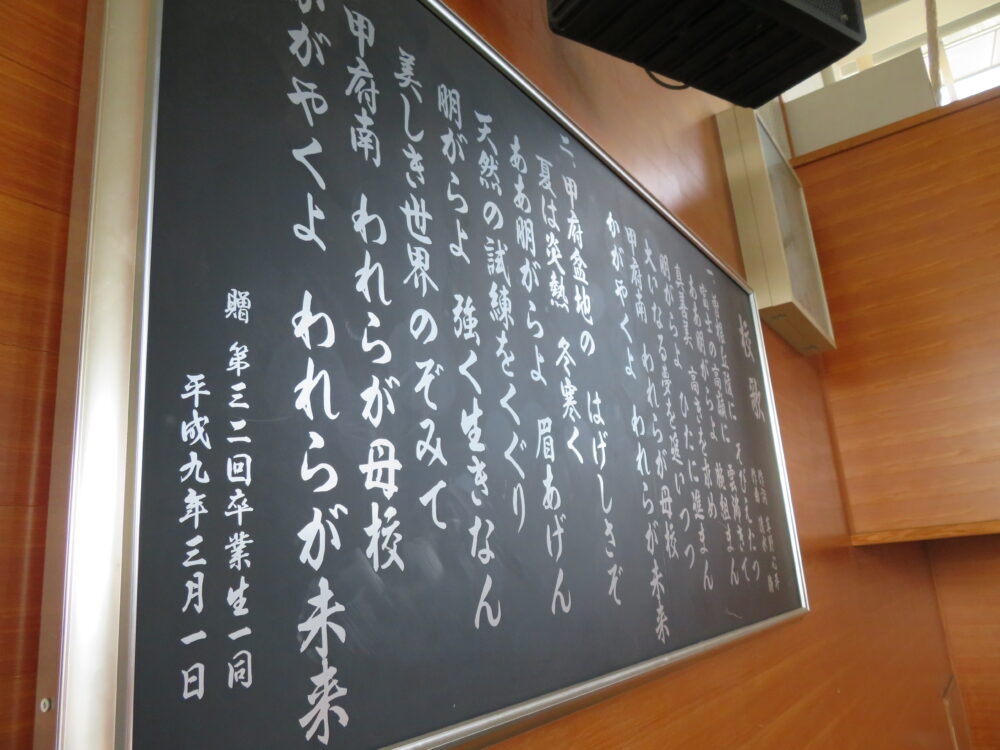 校歌
作詞
作曲
一 曽根丘陵に そびえたつ
富士の高嶺に 雲
ああ朋がらよ 腕組まん
真善美 高きを求め
朋がらよ ひたに進まん
大いなる夢を いつつ
甲府南 われらが母校
かがやくよ われらが未来
二 甲府盆地の はげしさぞ
夏は炎熱 冬寒く
ああ朋がらよ 眉あげん
天然の試練をくぐり
朋がらよ 強く生きなん
美しき世界のぞみて
甲府南 われらが母校
かがやくよ われらが未来
贈 第三二回卒業生一同
平成九年三月一日